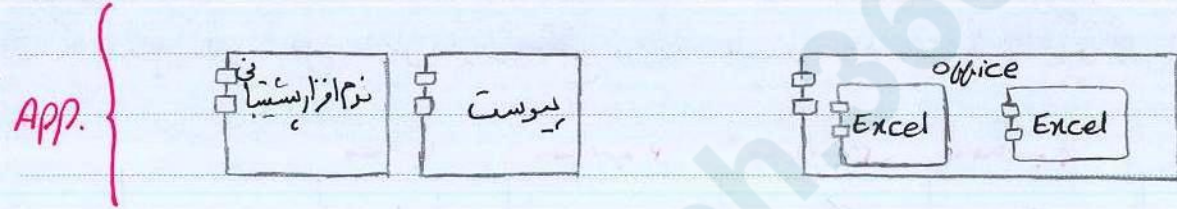 App.
نرم افزار پشتیبانی
پیوست
office
Excel
Excel